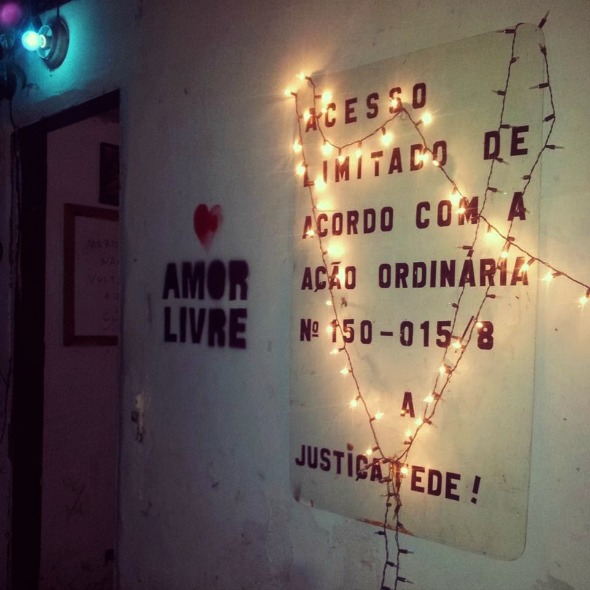 AMOR
LIVRE
ACESSO
LIMITADO DE
ACORDO COM A
AÇÃO ORDINÁRIA
Nº 150-015/8
A
JUSTIÇA FEDE!